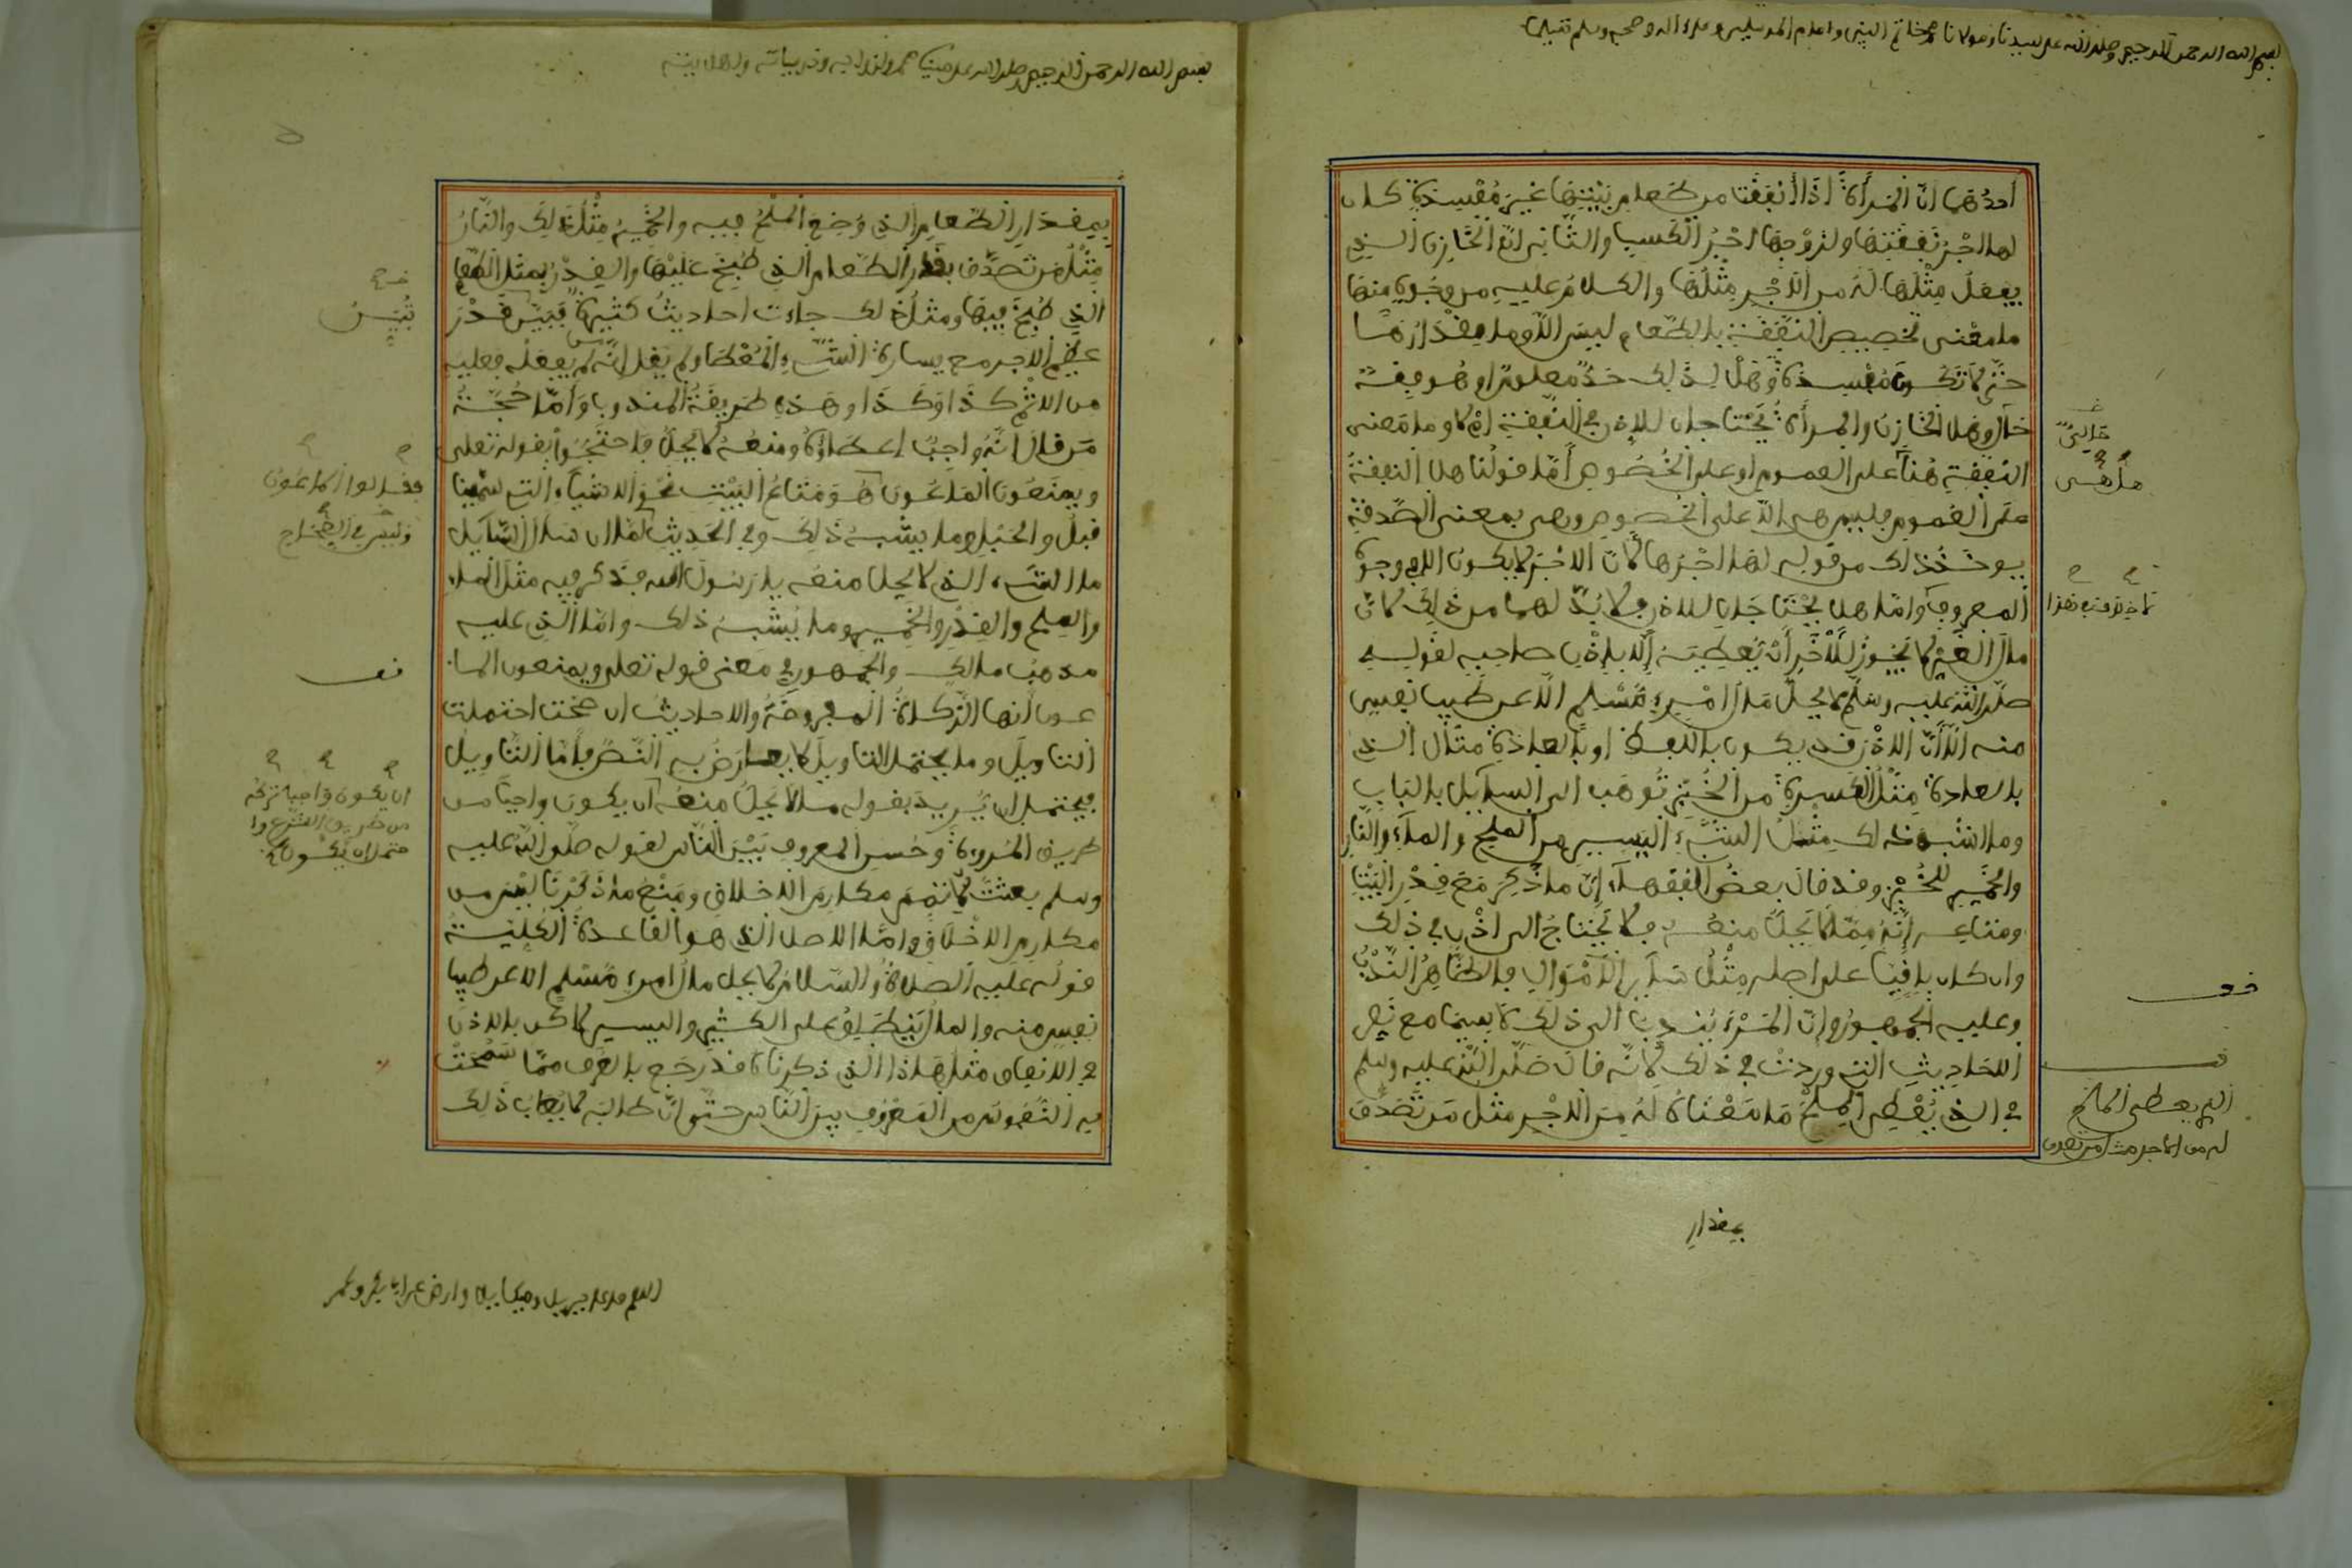 بسم الله الرحمن الرحيم وصلى الله على سيدنا ومولانا محمد خاتم النبيين وإمام المرسلين وعلى آله وصحبه وسلم تسليما
أحدهما أن المرأة إذا أنفقت من طعام بيتها غير مفسدة كان
لها أجر نفقتها ولزوجها أجر الكسب والثاني أن الخازن الذي
يفعل مثلها له من الأجر مثلها والكلام عليه من وجوه منها
ما معنى تخصيص النفقة بالطعام ليس إلا وما مقدارها
حتى لا تكون مفسدة وهل لذلك حد معلوم أو هو بقية
حال وهل الخازن والمرأة يحتاجان للإذن في النفقة أم لا وما معنى
النفقة هنا على العموم أو على الخصوص أما قولنا هل النفقة
على العموم فليس هي إلا على الخصوص وهي بمعنى الصدقة
يوخذ ذلك من قوله لها أجرها لأن الأجر لا يكون إلا في وجوه
المعروف وأما هل يحتاجان للإذن فلا بد لهما من ذلك لأن
مال الغير لا يجوز للآخر أن يعطيه إلا بإذن صاحبه لقوله
صلى الله عليه وسلم لا يحل مال امرئ مسلم إلا عن طيب نفس
منه إلا أن الإذن قد يكون باللفظ أو بالعادة مثال الذي
بالعادة مثل الكسرة من الخبز توهب إلى السائل بالباب
وما أشبه ذلك مثل الشيء اليسير من الملح والماء والنار
والخمير للخبز وقد قال بعض الفقهاء إن ما ذكر مع قدر البيت
ومتاعه أنه مما لا يحل منعه فلا يحتاج إلى إذن في ذلك
وإن كان باقيا على أصله مثل سائر الأموال فالظاهر الندب
وعليه الجمهور وأن المرء يندب إلى ذلك لا سيما مع نص
الأحاديث التي وردت في ذلك لأنه قال صلى الله عليه وسلم
في الذي يعطي الملح ما معناه له من الأجر مثل من تصدق
بمقدار
الذي يعطي الملح
له من الأجر مثل من تصدق
بسم الله الرحمن الرحيم وصلى الله على نبينا محمد وأزواجه وذرياته وأهل بيته
بمقدار الطعام الذي وضع الملح فيه والخمير مثل ذلك والنار
مثل من تصدق بقدر الطعام الذي طبخ عليها والقدر بمثل الطعام
الذي طبخ فيها ومثل ذلك جاءت أحاديث كثيرة فبين قدر
عظم الأجر مع يسارة الشيء المعطا ولم يقل إنه من لم يفعله فعليه
من الإثم كذا وكذا وهذه طريقة المندوب وأما حجة
من قال أنه واجب إعطاؤه ومنعه لا يحل فاحتجوا بقوله تعلى
ويمنعون الماعون هو متاع البيت نحو الأشياء التي سمينا
قبل والحبل وما يشبه ذلك وفي الحديث لما أن سأل السائل
ما الشيء الذي لا يحل منعه يا رسول الله فذكر فيه مثل الماء
والملح والقدر والخمير وما يشبه ذلك وأما الذي عليه
مذهب مالك والجمهور في معنى قوله تعلى ويمنعون الما
عون أنها الزكاة المفروضة والأحاديث إن صحت احتملت
التاويل وما يحتمل التاويل لا يعارض به النص فأما التاويل
فيحتمل أن يريد بقوله ما لا يحل منعه أن يكون واجبا من
طريق المروءة وحسن المعروف بين الناس لقوله صلى الله عليه
وسلم بعثت لأتمم مكارم الأخلاق ومنع ما ذكرنا ليس من
مكارم الأخلاق وأما الأصل الذي هو القاعدة الكلية
قوله عليه الصلاة والسلام لا يحل مال امرئ مسلم إلا عن طيب
نفس منه والمال ينطلق على الكثير واليسير لاكن بالإذن
في الإنفاق مثل هذا الذي ذكرناه قد رجع بالعرف مما سمحت
به النفوس من المعروف بين الناس حتى أن طالبه لا يعاب ذلك
أن يكون واجبا تركه
من طريق الشرع وا
حتمل أن يكون